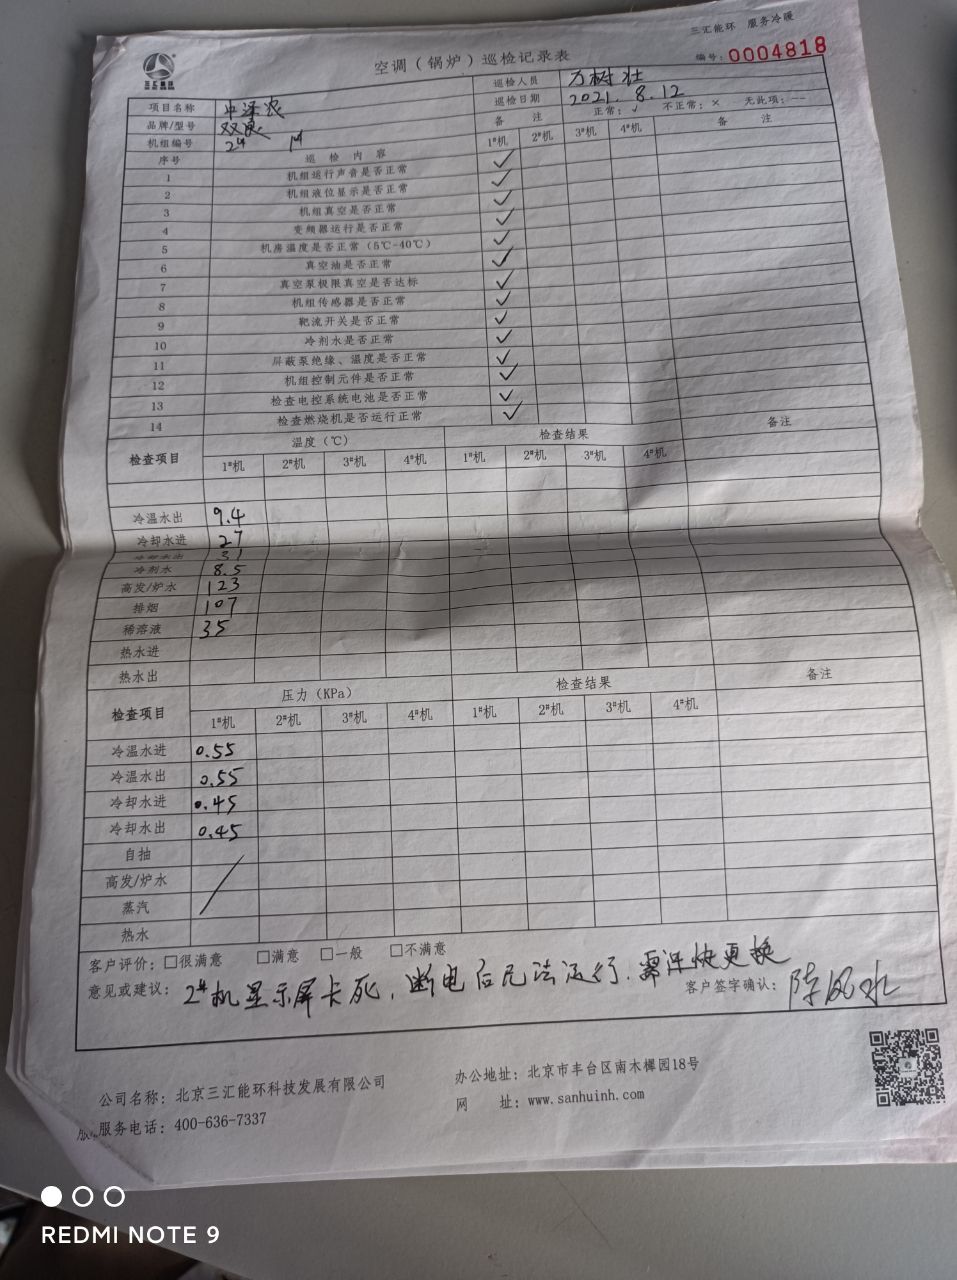 三汇能环 服务冷暖
三汇能环
空调（锅炉）巡检记录表
编号：0004818
项目名称 中泽农 巡检人员 万树壮
品牌/型号 双良 巡检日期 2021.8.12
机组编号 2# 1# 备 注 正常：√ 不正常：× 无此项：--
序号 巡 检 内 容 1#机 2#机 3#机 4#机 备 注
1 机组运行声音是否正常 ✓
2 机组液位显示是否正常 ✓
3 机组真空是否正常 ✓
4 变频器运行是否正常 ✓
5 机房温度是否正常（5℃-40℃） ✓
6 真空油是否正常 ✓
7 真空泵极限真空是否达标 ✓
8 机组传感器是否正常 ✓
9 靶流开关是否正常 ✓
10 冷剂水是否正常 ✓
11 屏蔽泵绝缘、温度是否正常 ✓
12 机组控制元件是否正常 ✓
13 检查电控系统电池是否正常 ✓
14 检查燃烧机是否运行正常 ✓
检查项目 温度（℃） 检查结果 备注
1#机 2#机 3#机 4#机 1#机 2#机 3#机 4#机
冷温水出 9.4
冷却水进 27
冷却水出 31
冷剂水 8.5
高发/炉水 123
排烟 107
稀溶液 35
热水进
热水出
检查项目 压力（KPa） 检查结果 备注
1#机 2#机 3#机 4#机 1#机 2#机 3#机 4#机
冷温水进 0.55
冷温水出 0.55
冷却水进 0.45
冷却水出 0.45
自抽
高发/炉水
蒸汽
热水
客户评价：□很满意 □满意 □一般 □不满意
意见或建议：2#机显示屏卡死，断电后无法运行，需尽快更换
客户签字确认：陈风水
公司名称：北京三汇能环科技发展有限公司 办公地址：北京市丰台区南木樨园18号
服务电话：400-636-7337 网 址：www.sanhuinh.com
REDMI NOTE 9